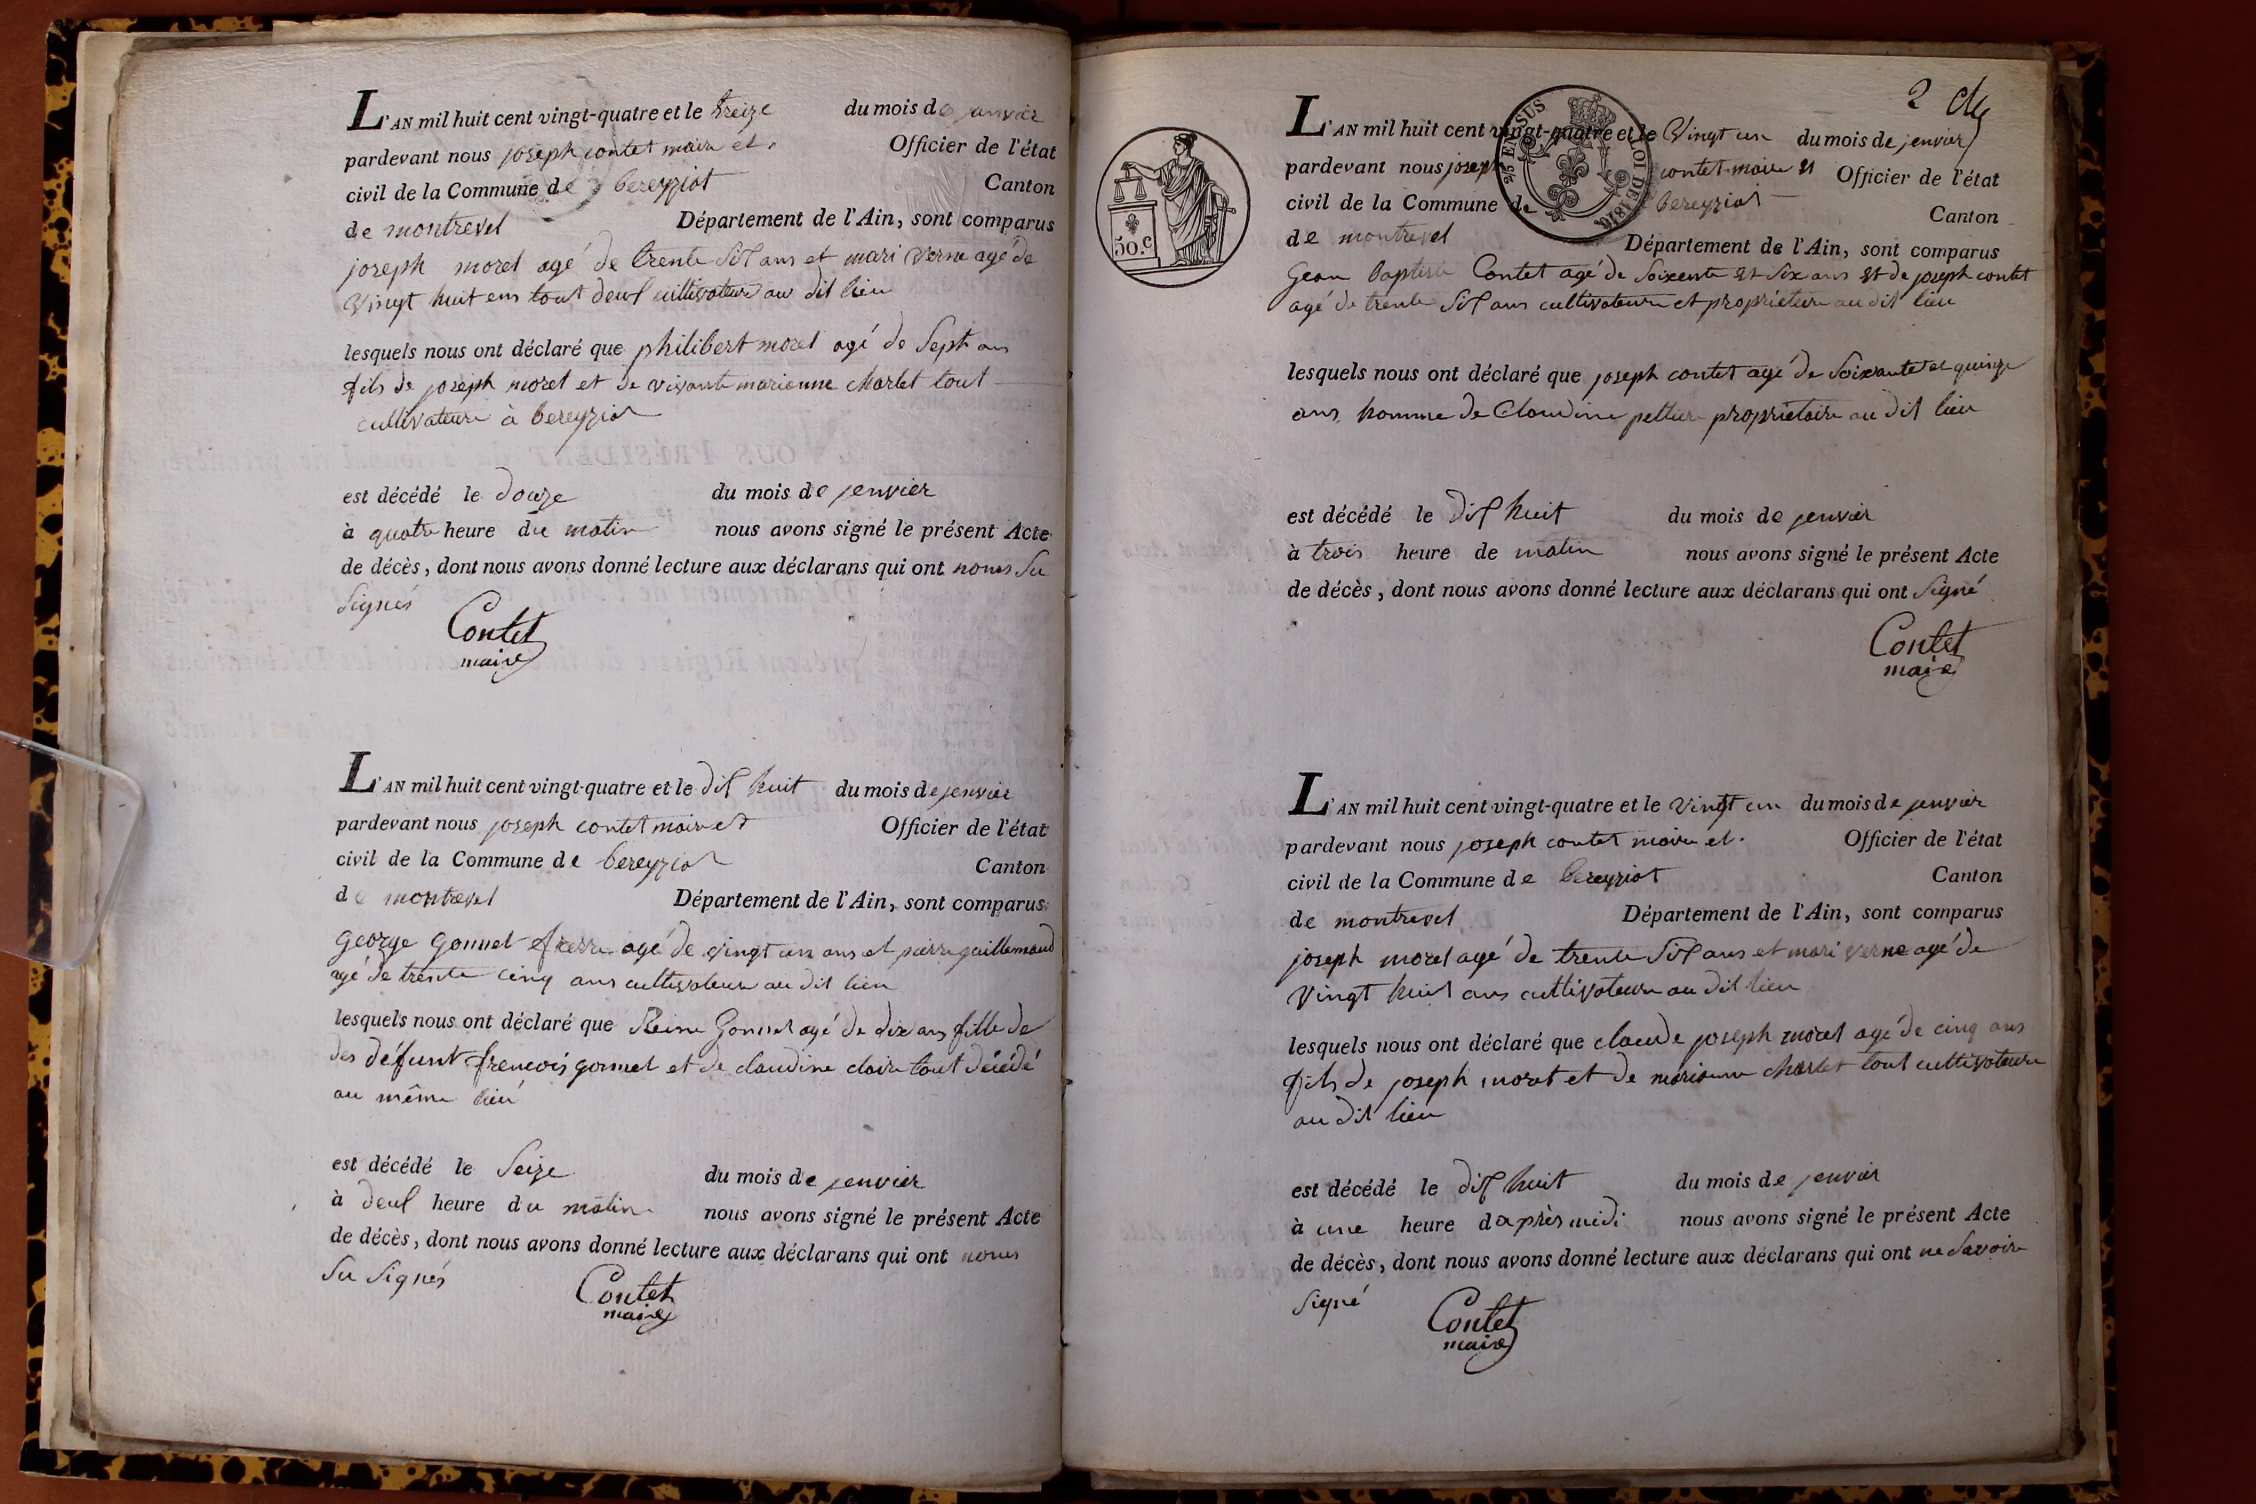 L'AN mil huit cent vingt-quatre et le treize du mois de janvier
pardevant nous joseph contet maire et Officier de l'état
civil de la Commune de bereyziat Canton
de montrevel Département de l'Ain, sont comparus
joseph morel agé de trente six ans et mari verne agé de
vingt huit ens tout deux cultivateur au dit lieu
lesquels nous ont déclaré que philibert morel agé de Sept ans
fils de joseph morel et de vivante marianne charlet tout
cultivateure à bereyziat
est décédé le douze du mois de jenvier
à quatre heure du matin nous avons signé le présent Acte
de décès, dont nous avons donné lecture aux déclarans qui ont nonts Su
Signés
Contet
maire
L'AN mil huit cent vingt-quatre et le dix huit du mois de jenvier
pardevant nous joseph contet maire et Officier de l'état
civil de la Commune de bereyziat Canton
de montrevel Département de l'Ain, sont comparus
George Gonnet frerre agé de vingt un ans et pierre guillemaud
agé de trente cinq ans cultivateure au dit lieu
lesquels nous ont déclaré que Reine Gonnet agé de dix ans fille de
des défunt frencois gonnet et de claudine claire tout décédé
au même lieu
est décédé le Seize du mois de jenvier
à deux heure du matin nous avons signé le présent Acte
de décès, dont nous avons donné lecture aux déclarans qui ont
Su Signés
Contet
maire
2
L'AN mil huit cent vingt-quatre et le Vingt un du mois de jenvier
pardevant nous joseph contet maire et Officier de l'état
civil de la Commune de bereyziat Canton
de montrevel Département de l'Ain, sont comparus
25 EN SUS
LOI DE 1816
50.c
Gean baptiste Contet agé de Soixente et Six ans et de joseph contet
agé de trente Six ans cultivateure et proprietere au dit lieu
lesquels nous ont déclaré que joseph contet agé de Soixante et quinze
ans homme de Claudine peltier propriétaire au dit lieu
est décédé le dix huit du mois de jenvier
à trois heure de matin nous avons signé le présent Acte
de décès, dont nous avons donné lecture aux déclarans qui ont Signé
Contet
maire
L'AN mil huit cent vingt-quatre et le vingt un du mois de jenvier
pardevant nous joseph contet maire et Officier de l'état
civil de la Commune de bereyziat Canton
de montrevel Département de l'Ain, sont comparus
joseph morel agé de trente Six ans et mari verne agé de
Vingt huit ans cultivateure au dit lieu
lesquels nous ont déclaré que claude joseph morel agé de cinq ans
fils de joseph morel et de marianne charlet tout cultivateure
au dit lieu
est décédé le dix huit du mois de jenvier
à une heure daprès midi nous avons signé le présent Acte
de décès, dont nous avons donné lecture aux déclarans qui ont ne Savoir
Signé
Contet
maire